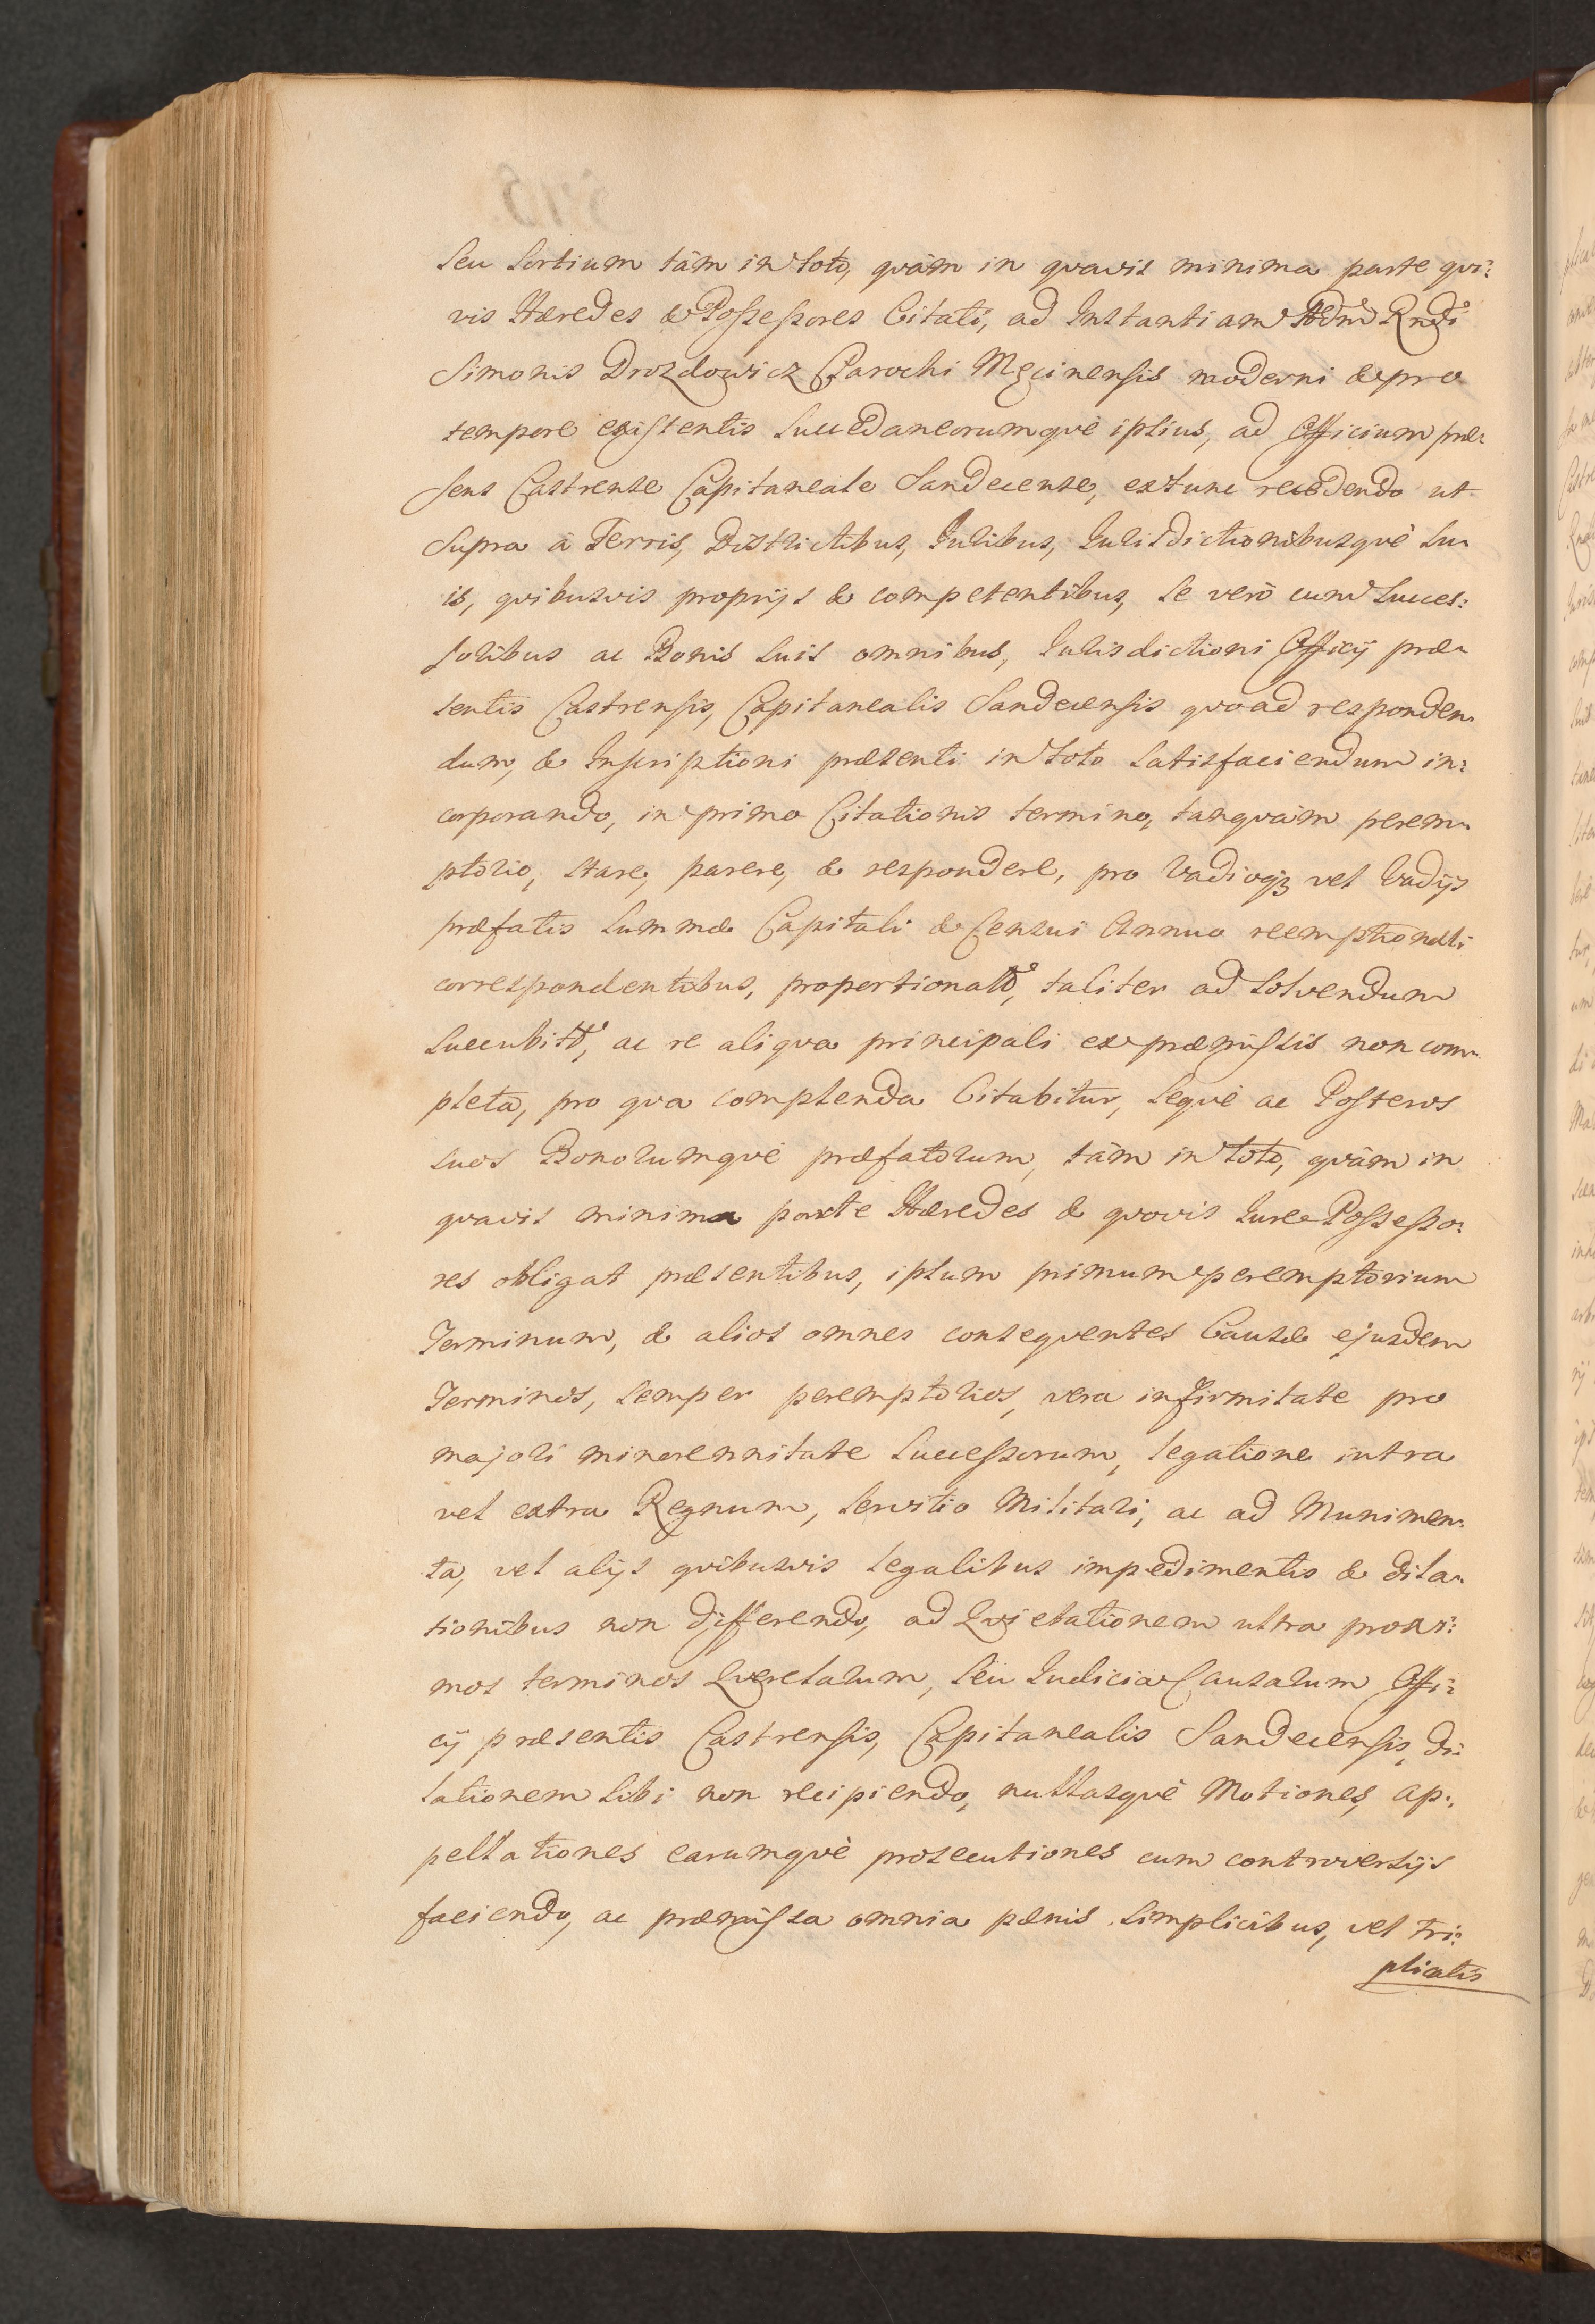 seu Sortium tàm in toto, qvàm in qvavis minima parte qvi:
vis Hæredes & Possessores Citati, ad Instantiam Adm Rndi
Simonis Drozdowicz Parochi Męcinensis moderni & pro
tempore existentis Succedaneorumqvè ipsius, ad Officium præ:
sens Castrense Capitaneale Sandecense, extunc recedendo ut
supra à Terris, Districtibus, Iuribus, Iurisdictionibusqvè su:
is, qvibusvis proprijs & competentibus, se verò cum Succes:
soribus ac Bonis suis omnibus, Iurisdictioni Officij præ:
sentis Castrensis, Capitanealis Sandecensis qvoad responden:
dum, & Inscriptioni præsenti in toto satisfaciendum in:
corporando, in primo Citationis termino, tanqvàm perem:
ptorio, stare, parere, & respondere, pro Vadioqz vel Vadijs
præfatis Summæ Capitali & Censui Annuo reemptionali
correspondentibus, proportionalr, taliter ad solvendum
succubitr, ac re aliqva principali ex præmissis non com:
pleta, pro qva complenda Citabitur, Seqvè ac Posteros
suos Bonorumqvè præfatorum, tàm in toto, qvàm in
qvavis minima parte Hæredes & qvovis Iure Possesso:
res obligat præsentibus, ipsum primum peremptorium
Terminum, & alios omnes conseqventes Causæ ejusdem
Terminos, semper peremptorios, vera infirmitate pro
majori minorennitate Successorum, legatione intra
vel extra Regnum, servitio Militari, ac ad Munimen:
ta, vel alijs qvibusvis legalibus impedimentis & dila:
tionibus non differendo, ad Qvietationem ultra proxi:
mos terminos Qverelarum, seu Iudicia Causarum Offi:
cij præsentis Castrensis, Capitanealis Sandecensis, di:
lationem sibi non recipiendo, nullasqvè Motiones, ap:
pellationes earumqvè prosecutiones cum controversijs
faciendo, ac præmissa omnia pænis simplicibus, vel tri:
plicatis